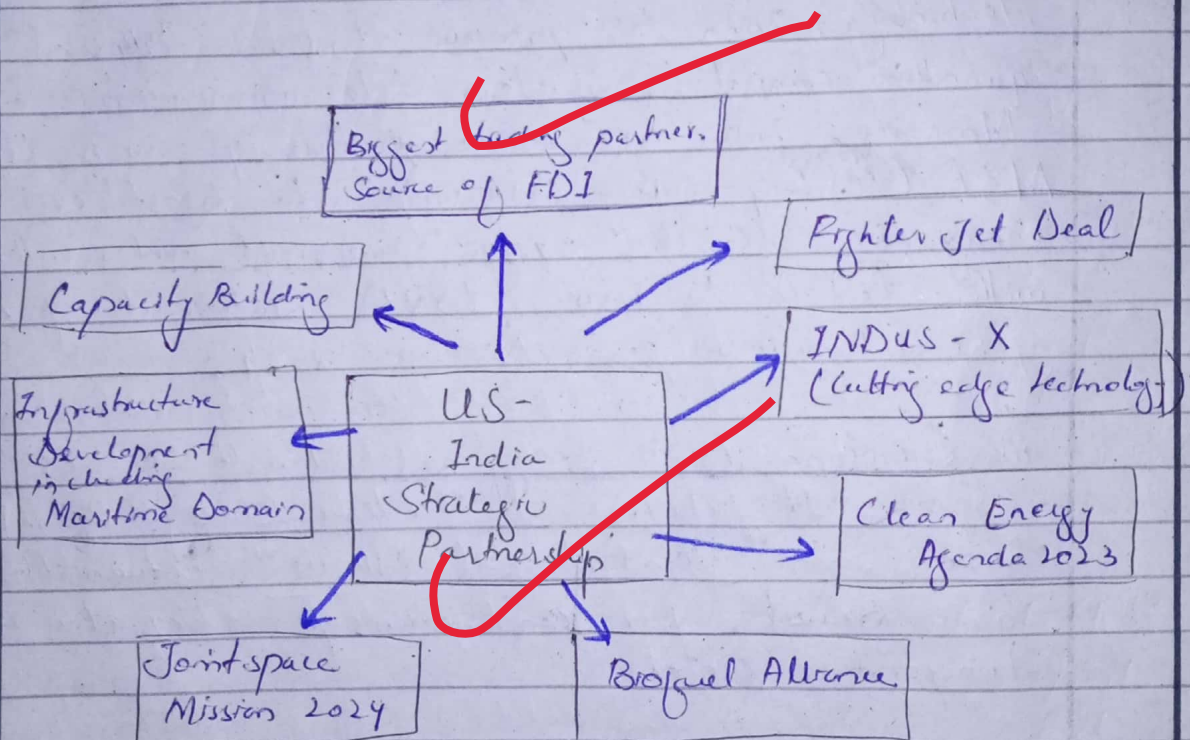 Biggest trading partner.
Source of FDI
Fighter Jet Deal
Capacity Building
INDUS - X
(Cutting edge technology)
Infrastructure
Development
including
Maritime Domain
US -
India
Strategic
Partnership
Clean Energy
Agenda 2023
Joint space
Mission 2024
Biofuel Alliance